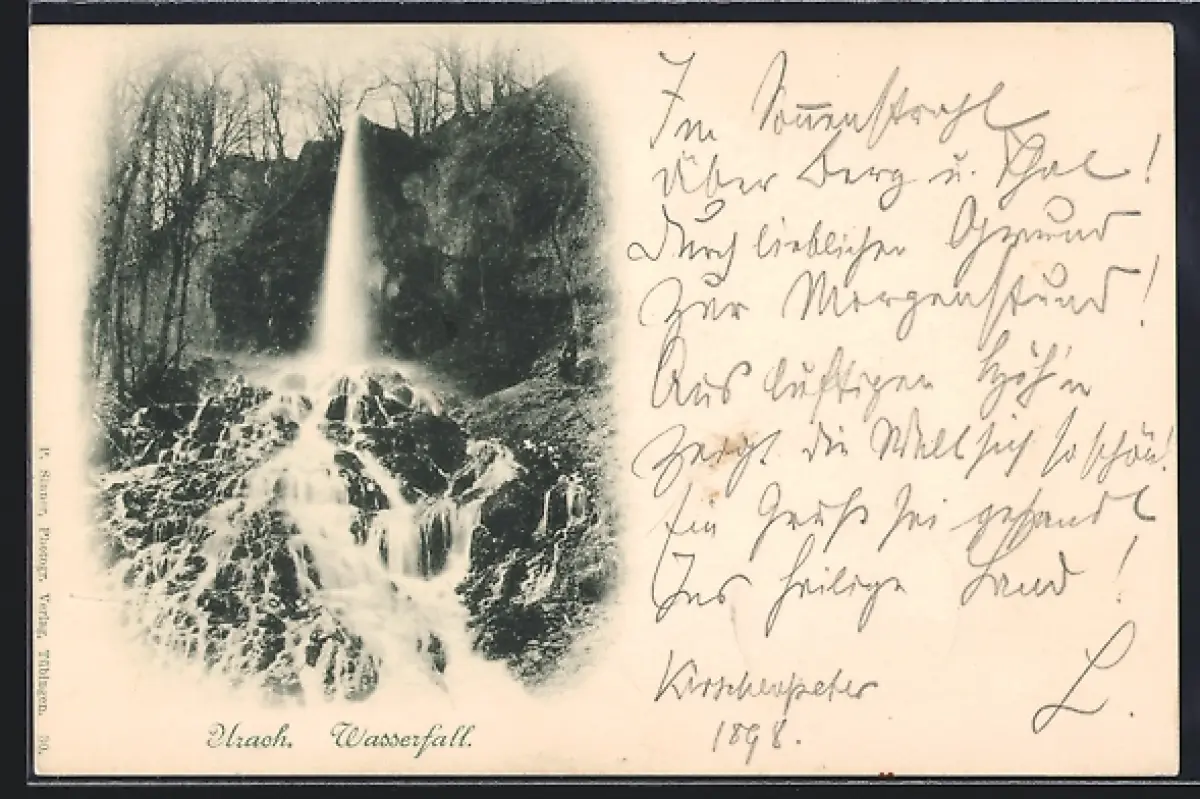 Im Sonnenstrahl
über Berg u. Thal!
Durch lieblichen Grund
zur Morgenstund!
Aus luftigen Höh'n
zeigt die Welt sich so schön!
Ein Gruß sei gesandt
Ins heilige Land!
L.
Kirschenpeter
1898.
Urach. Wasserfall.
P. Sinner, Photogr. Verlag, Tübingen. 30.